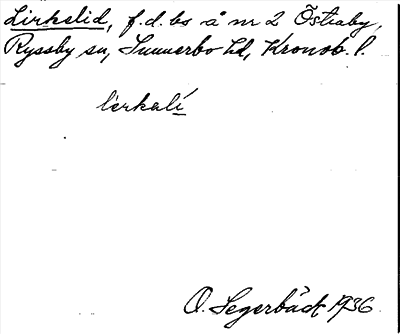 Lirkelid, f.d. bs å nr 2 Östraby,
Ryssby sn, Sunnerbo hd, Kronob. l.
lirkalí
O. Segerbäck 1936